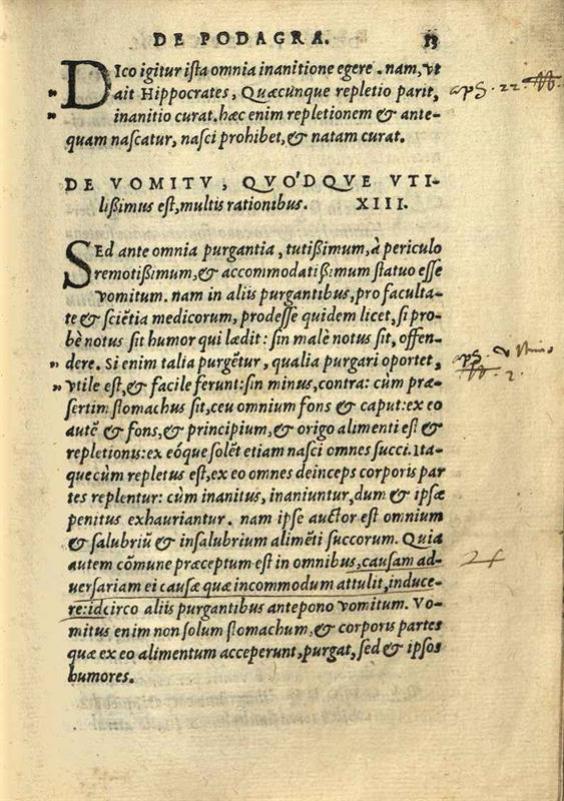 DE PODAGRA. 13
DIco igitur ista omnia inanitione egere . nam, vt
ait Hippocrates, Quæcunque repletio parit,
inanitio curat. hæc enim repletionem & ante-
quam nascatur, nasci prohibet, & natam curat.
DE VOMITV, QVO'DQVE VTI-
lißimus est, multis rationibus. XIII.
SEd ante omnia purgantia, tutißimum, à periculo
remotißimum, & accommodatißimum statuo esse
vomitum. nam in aliis purgantibus, pro faculta-
te & sciẽtia medicorum, prodesse quidem licet, si pro-
bè notus sit humor qui lædit: sin malè notus sit, offen-
dere. Si enim talia purgẽtur, qualia purgari oportet,
vtile est, & facile ferunt: sin minus, contra: cùm præ-
sertim stomachus sit, ceu omnium fons & caput: ex eo
autẽ & fons, & principium, & origo alimenti est &
repletionis: ex eóque solẽt etiam nasci omnes succi. Ita-
que cùm repletus est, ex eo omnes deinceps corporis par
tes replentur: cùm inanitus, inaniuntur, dum & ipsæ
penitus exhauriantur. nam ipse auctor est omnium
& salubriũ & insalubrium alimẽti succorum. Quia
autem cõmune præceptum est in omnibus, causam ad-
uersariam ei causæ quæ incommodum attulit, induce-
re: idcirco aliis purgantibus antepono vomitum. Vo-
mitus enim non solum stomachum, & corporis partes
quæ ex eo alimentum acceperunt, purgat, sed & ipsos
humores.
aps. 22.
aps.
2.